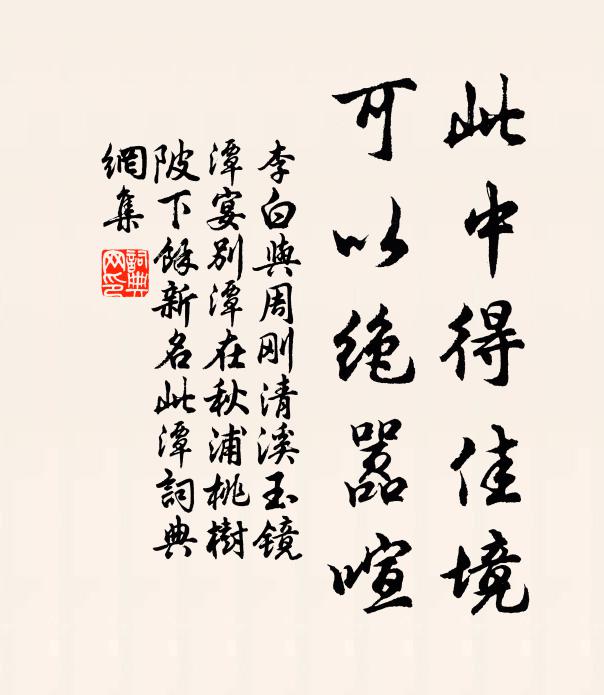 此中得佳境
可以绝嚣喧
李白與周刚清溪玉镜
潭宴别潭在秋浦桃樹
陂下餘新名此潭詞典
網集
詞典网印